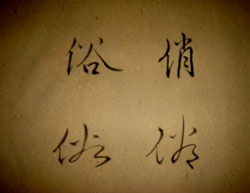 俗 俏
俗 俏